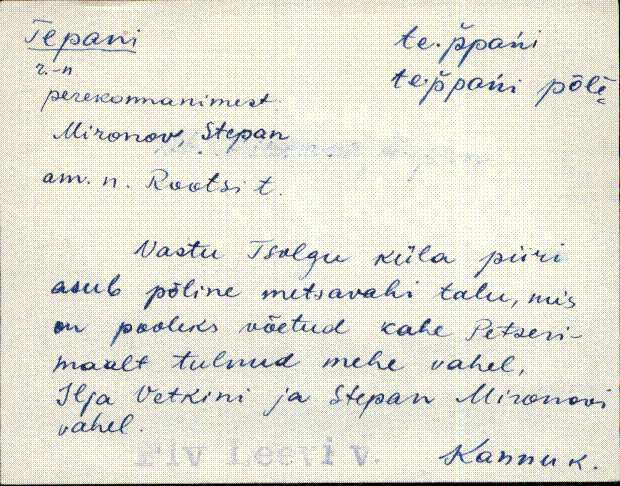 Tepani
te·p̌pańi
r.-n
te·p̌pańi põlĕ
perekonnanimest
Mironov, Stepan
am. n. Rootsi t.
Vastu Tsolgu küla piiri
asub põline metsavahi talu, mis
on pooleks võetud kahe Petseri-
maalt tulnud mehe vahel,
Ilja Vetkini ja Stepan Mironovi
vahel.
Plv Leevi v.
Kannuk.